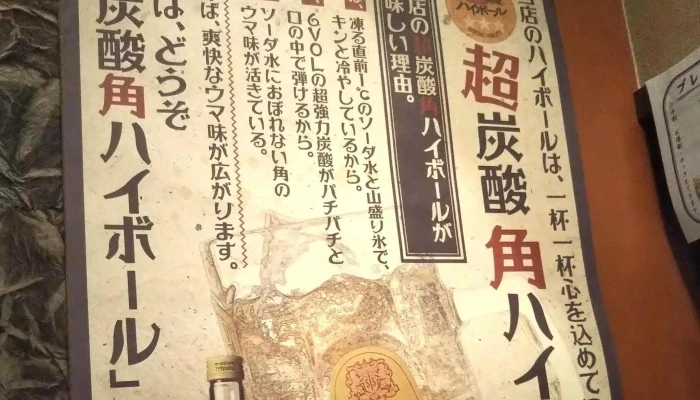 ハイボール
店のハイボールは、一杯一杯心を込めて
超炭酸角ハイ
店の超炭酸角ハイボールが
味しい理由。
凍る直前1℃のソーダ水と山盛り氷で、
キンと冷やしているから。
6VOLの超強力炭酸がパチパチと
口の中で弾けるから。
ソーダ水におぼれない角の
ウマ味が活きている。
ば、爽快なウマ味が広がります。
は、どうぞ
炭酸角ハイボール」